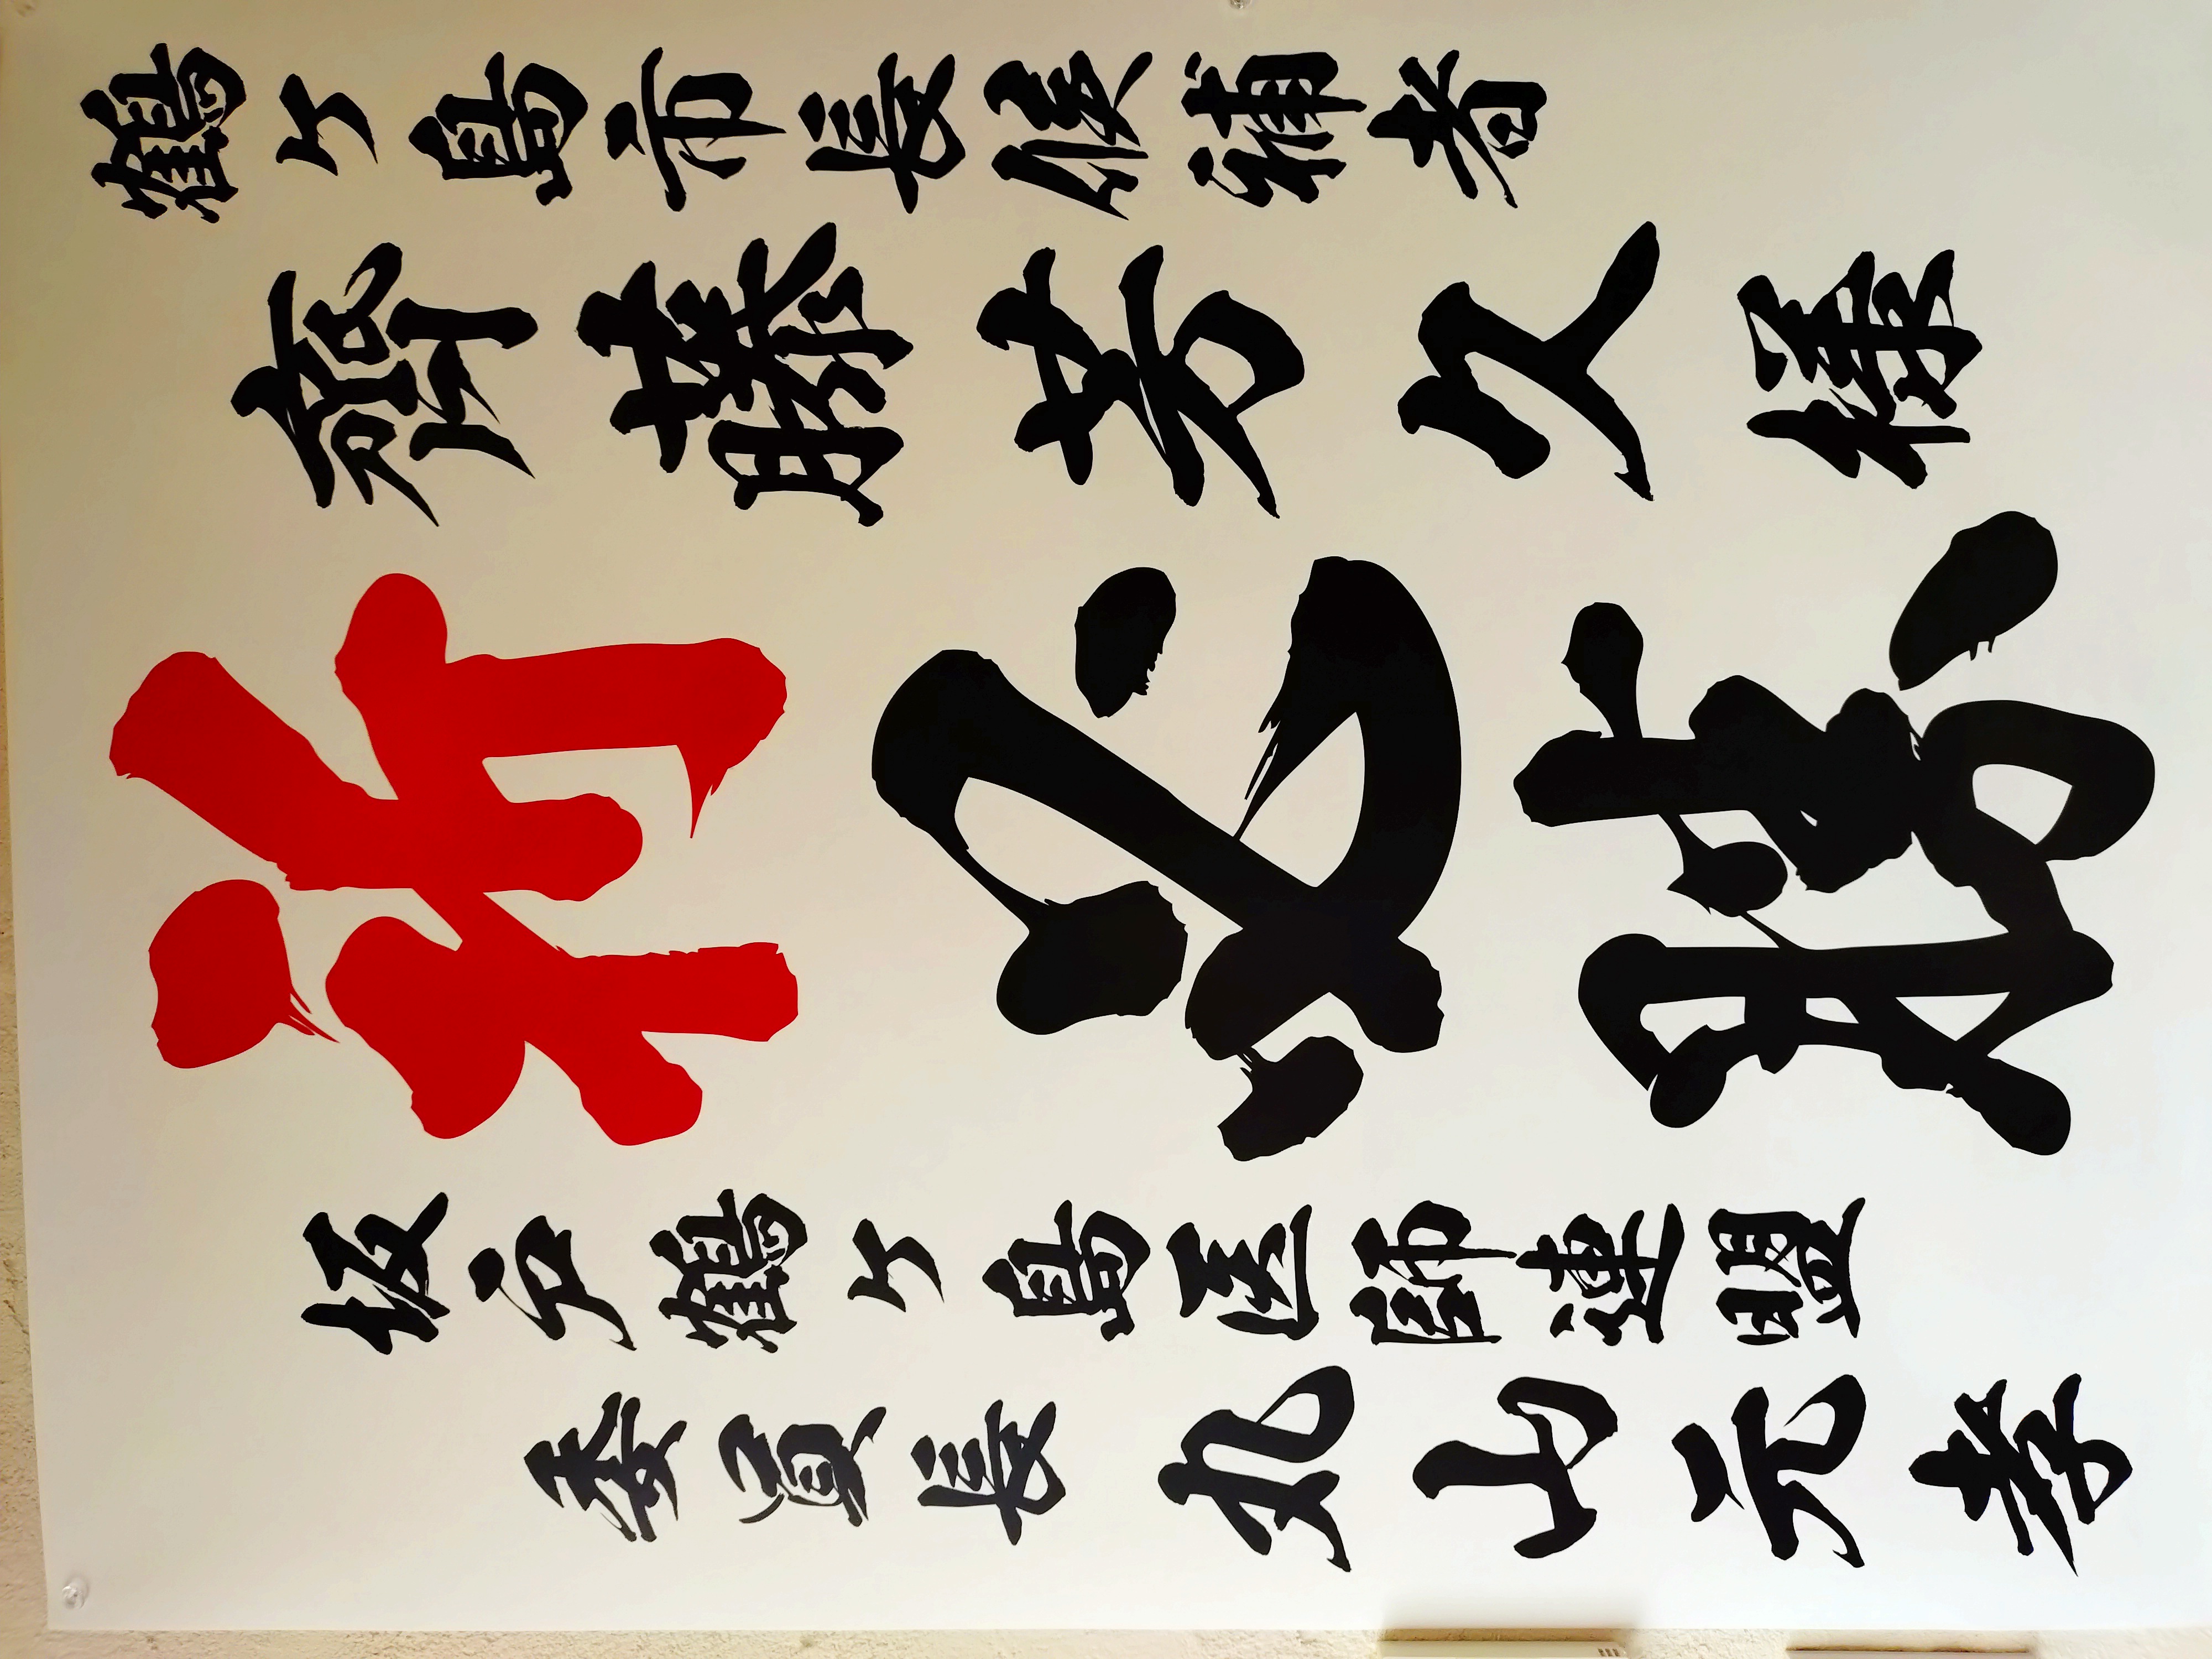 鶴ヶ島市長候補者
齊藤芳久様
祈必勝
坂戸鶴ヶ島医師連盟
委員長丸山元孝